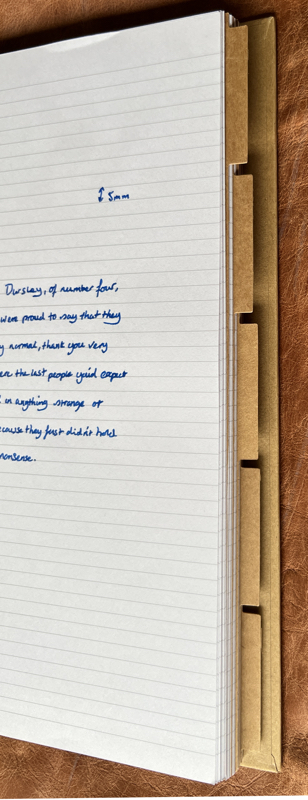 ↕ 5mm
Dursley, of number four,
were proud to say that they
y normal, thank you very
ere the last people you'd expect
d in anything strange or
ecause they just didn't hold
nonsense.